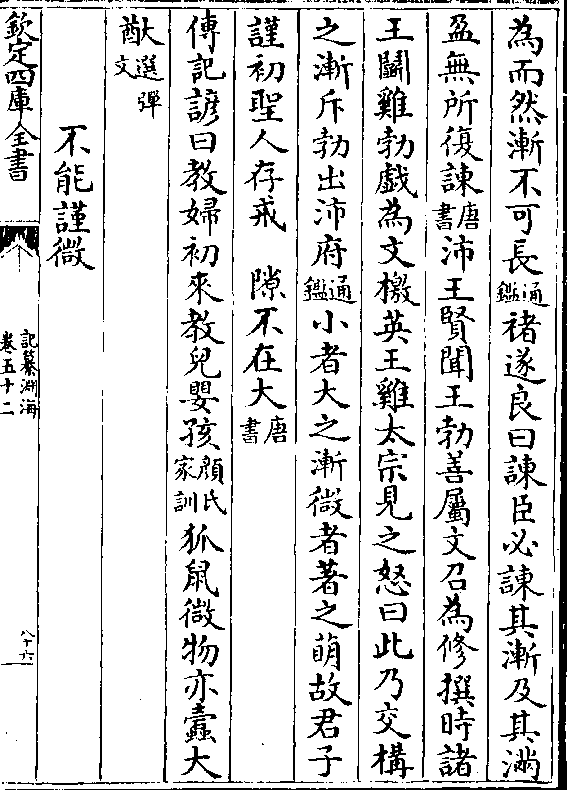 為而然漸不可長通鑑褚遂良曰諫臣必諫其漸及其滿
盈無所復諫唐書沛王賢聞王勃善屬文召為修撰時諸
王鬭雞勃戲為文檄英王雞太宗見之怒曰此乃交構
之漸斥勃出沛府通鑑小者大之漸微者著之萌故君子
謹初聖人存戒　隙不在大唐書
傳記諺曰教婦初來教兒嬰孩顔氏家訓狐鼠微物亦蠹大
猷文選彈文
不能謹微
欽定四庫全書
記纂淵海
卷五十二
八十六